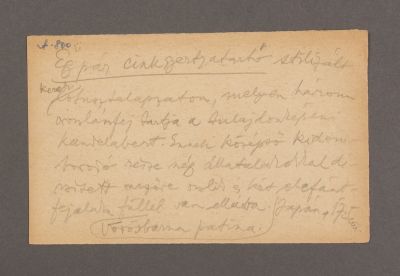 A-800
Egy pár cinkgyertyatartó stilizált
kerek
lótusztalapzaton, melyen három
oroszlánfej tartja a tulajdonképeni
kandelabert. Ennek középső kidom-
borodó része négy állatalakokkal dí-
szített
fejalakú füllel van ellátva. (Japán,
Vörösbarna patina.